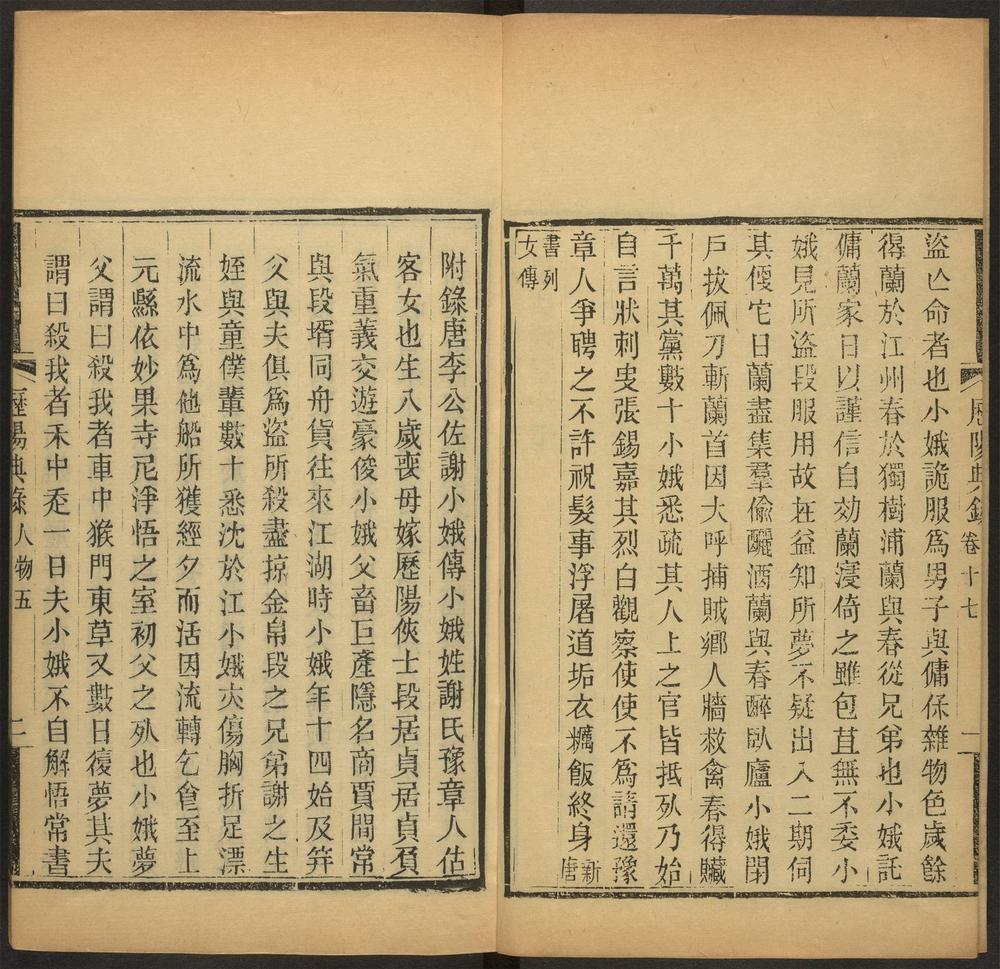 盜亾命者也小娥詭服爲男子與傭保雜物色歲餘
得蘭於江州春於獨樹浦蘭與春從兄弟也小娥託
傭蘭家日以謹信自効蘭寖倚之雖包苴無不委小
娥見所盜段服用故在益知所夢不疑出入二期伺
其便它日蘭盡集羣偷釃酒蘭與春醉臥廬小娥閉
戶拔佩刀斬蘭首因大呼捕賊鄉人牆救禽春得贓
千萬其黨數十小娥悉疏其人上之官皆抵死乃始
自言狀刺史張錫嘉其烈白觀察使使不爲請還豫
章人爭聘之不許祝髮事浮屠道垢衣糲飯終身新唐
書列女傳
歷陽典錄 卷十七 一
附錄唐李公佐謝小娥傳小娥姓謝氏豫章人估
客女也生八歲喪母嫁歷陽俠士段居貞居貞負
氣重義交遊豪俊小娥父畜巨產隱名商賈閒常
與段壻同舟貨往來江湖時小娥年十四始及笄
父與夫俱爲盜所殺盡掠金帛段之兄弟謝之生
姪與童僕輩數十悉沈於江小娥亦傷胸折足漂
流水中爲他船所獲經夕而活因流轉乞食至上
元縣依妙果寺尼淨悟之室初父之死也小娥夢
父謂曰殺我者車中猴門東草又數日復夢其夫
謂曰殺我者禾中走一日夫小娥不自解悟常書
歷陽典錄 人物五 二